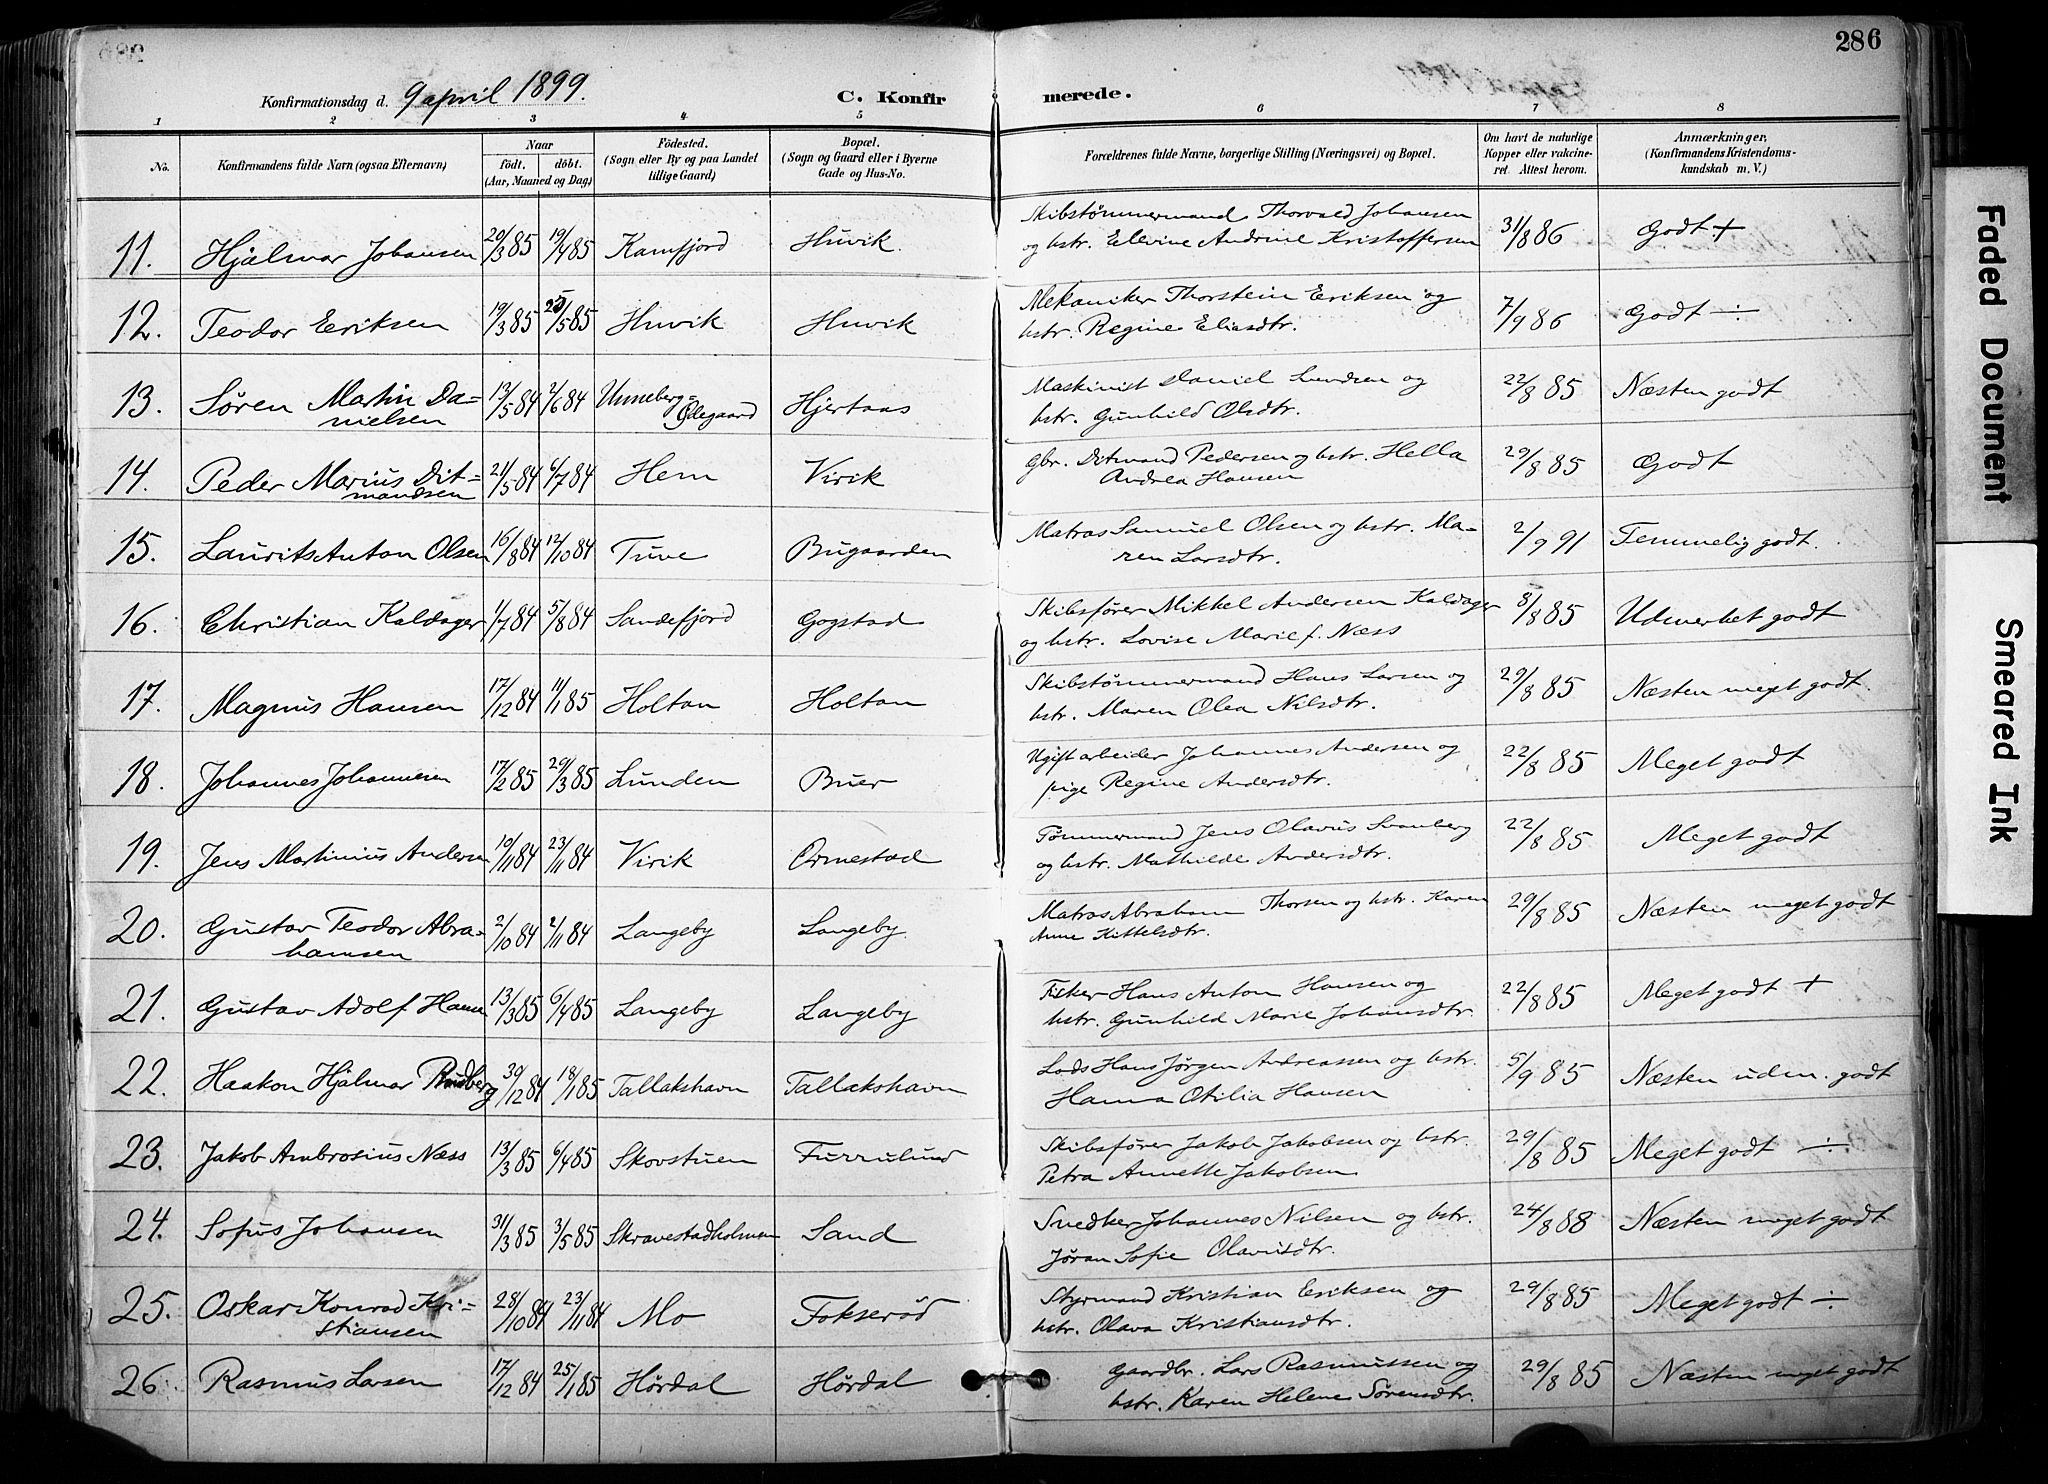 286
Konfirmationsdag d. 9 april 1899.
C. Konfirmerede.
1 2 3 4 5 6 7 8
No. Konfirmandens fulde Navn (ogsaa Efternavn) Naar født. døbt. (Aar, Maaned og Dag) Födested. (Sogn eller By og paa Landet tillige Gaard) Bopæl. (Sogn og Gaard eller i Byerne Gade og Hus-No. Forældrenes fulde Navne, borgerlige Stilling (Næringsvei) og Bopæl. Om havt de naturlige Kopper eller vakcineret. Attest herom. Anmærkninger, (Konfirmandens Kristendomskundskab m. V.)
11. Hjalmar Johansen 20/3 85 19/4 85 Kamfjord Huvik. Skibstømmermand Thorvald Johansen 31/8 86 Godt +
og hstr. Elevine Andrine Kristoffersen
12. Teodor Eriksen 19/3 85 25/5 85 Huvik Huvik Mekaniker Thorstein Eriksen og 7/9 86 Godt ÷
hstr. Regine Eliasdtr.
13. Søren Martin Da= 13/5 84 2/6 84 Unneberg= Hjertaas Maskinist Daniel Lundsen og 22/8 85 Næsten godt
nielsen Ødegaard hstr. Gunhild Olsdtr.
14. Peder Marius Dit= 21/5 84 6/7 84 Hem Virik Gbr. Ditmand Pedersen og hstr. Hella 29/8 85 Godt
mandsen Andrea Hansen
15. Laurits Anton Olsen 16/8 84 12/10 84 Tuve Bugaarden Matros Samuel Olsen og hstr. Ma= 2/9 91 Temmelig godt.
ren Larsdtr.
16. Christian Kaldager 1/7 84 5/8 84 Sandefjord Gogstad Skibsfører Mikkel Andersen Kaldager 8/8 85 Udmerket godt
og hstr. Lovise Marie f. Næss
17. Magnus Hansen 17/12 84 11/1 85 Holtan Holtan Skibstømmermand Hans Larsen og 29/8 85 Næsten meget godt.
hstr. Maren Olea Nilsdtr.
18. Johannes Johannesen 17/2 85 29/3 85 Lunden Buer Ugift arbeider Johannes Andersen og 22/8 85 Meget godt
pige Regine Andersdtr.
19. Jens Martinius Andersen 10/11 84 23/11 84 Virik Ormestad Tømmermand Jens Olavus Svanberg 22/8 85 Meget godt
og hstr. Mathilde Andersdtr.
20. Gustav Teodor Abra= 2/10 84 2/11 84 Langeby Langeby. Matros Abraham Thorsen og hstr. Karen 29/8 85 Næsten meget godt
hamsen Anne Kittelsdtr.
21. Gustav Adolf Hansen 13/3 85 6/4 85 Langeby Langeby Fisker Hans Anton Hansen og 22/8 85 Meget godt +
hstr. Gunhild Marie Johansdtr.
22. Haakon Hjalmar Rundberg 30/12 84 18/1 85 Tallakshavn Tallakshavn Lods Hans Jørgen Andreassen og hstr. 5/9 85 Næsten udm. godt
Hanna Otilia Hansen
23. Jakob Ambrosius Næss 13/3 85 6/4 85 Skovstuen Furrulund Skibsfører Jakob Jakobsen og hstr. 29/8 85 Meget godt ÷
Petra Annette Jakobsen
24. Sofus Johansen 31/3 85 3/5 85 Skravestadholmen Sand Snedker Johannes Nilsen og hstr. 24/8 88 Næsten meget godt
Jøran Sofie Olavusdtr.
25. Oskar Konrad Kri= 28/10 84 23/11 84 Mo Fokserød Styrmand Kristian Eriksen og 29/8 85 Meget godt ÷
stiansen hstr. Olava Kristiansdtr.
26. Rasmus Larsen 17/12 84 25/1 85 Hørdal Hørdal Gaardbr. Lars Rasmussen og 29/8 85 Næsten meget godt
hstr. Karen Helene Sørensdtr.
Faded Document
Smeared Ink